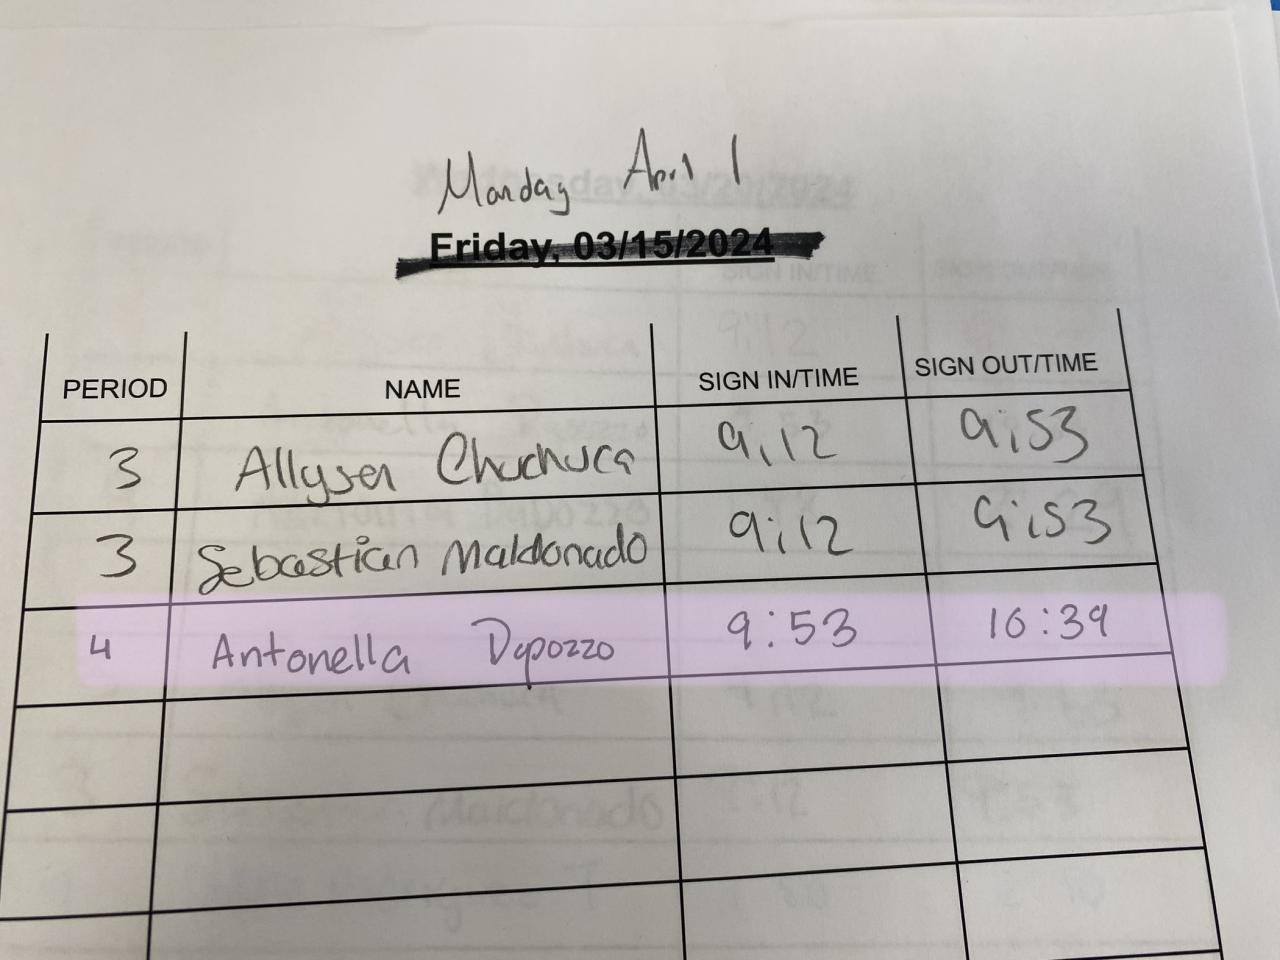 Monday April 1
Friday, 03/15/2024
PERIOD NAME SIGN IN/TIME SIGN OUT/TIME
3 Allysen Chuchuca 9:12 9:53
3 Sebastian Maldonado 9:12 9:53
4 Antonella Dapozzo 9:53 10:39